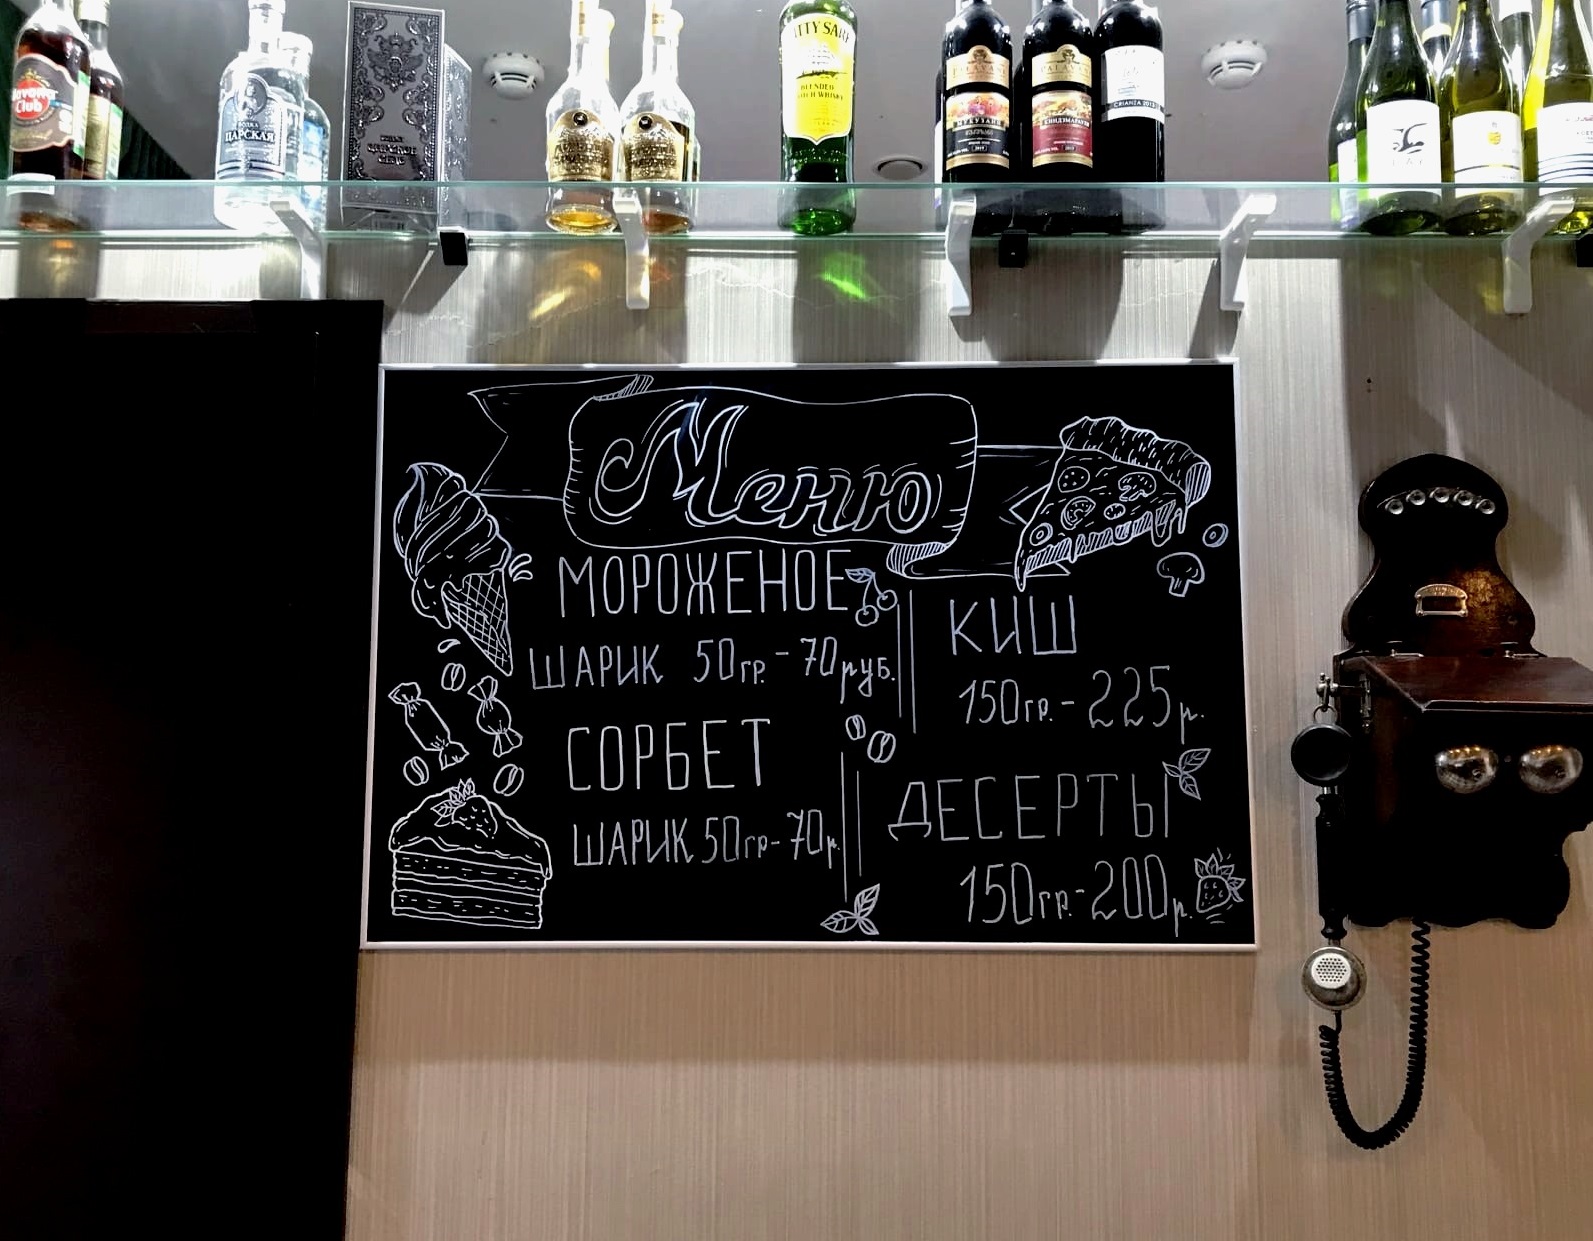 Havana
Club
ВОДКА
ЦАРСКАЯ
CUTTY SARK
BLENDED
SCOTCH WHISKY
МУКУЗАНИ
КИНДЗМАРАУЛИ
CRIANZA
Меню
МОРОЖЕНОЕ
ШАРИК 50гр.-70руб.
СОРБЕТ
ШАРИК 50гр-70р.
КИШ
150гр.-225р.
ДЕСЕРТЫ
150гр.-200р.